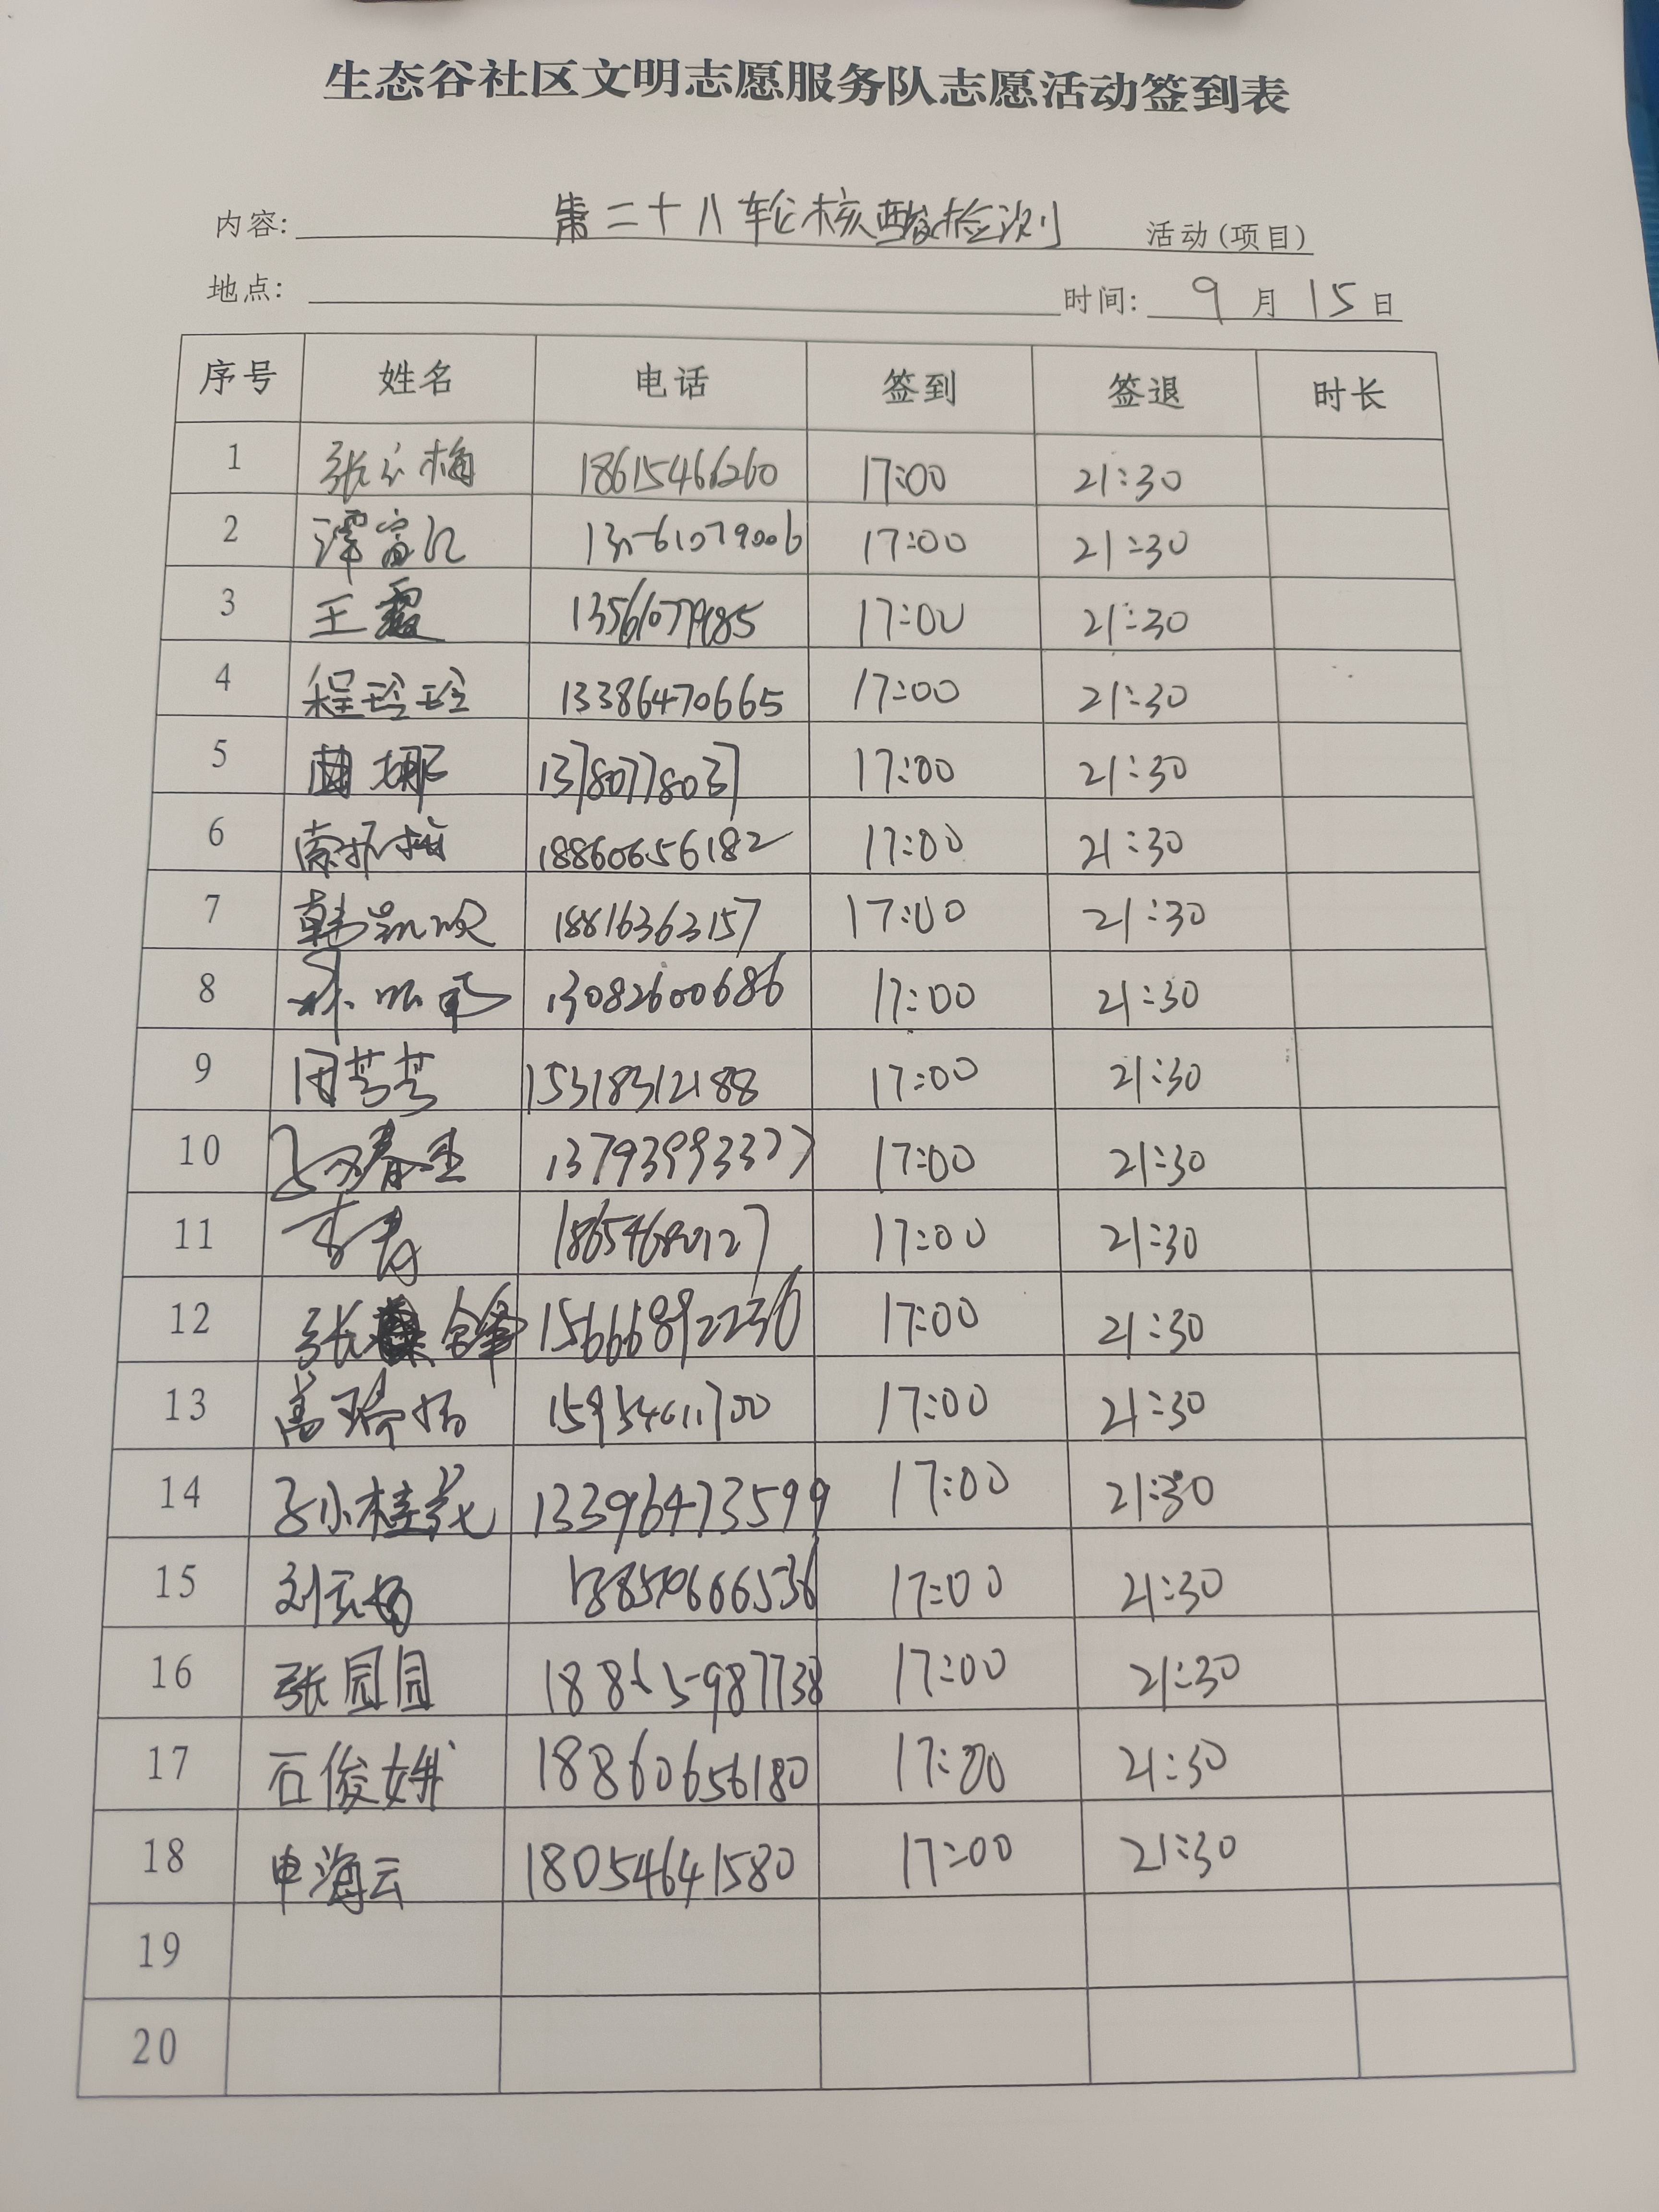 生态谷社区文明志愿服务队志愿活动签到表
内容: 第二十八轮核酸检测 活动(项目)
地点: 时间: 9月15日
序号 姓名 电话 签到 签退 时长
1 18615466260 17:00 21:30
2 13561079006 17:00 21:30
3 王霞 17:00 21:30
4 程玲玲 13386470665 17:00 21:30
5 13780778037 17:00 21:30
6 18860656182 17:00 21:30
7 18816363157 17:00 21:30
8 13082600686 17:00 21:30
9 田芳芳 15318312188 17:00 21:30
10 13793993377 17:00 21:30
11 17:00 21:30
12 张 锋 15666892236 17:00 21:30
13 17:00 21:30
14 孙桂花 13396473599 17:00 21:30
15 17:00 21:30
16 张园园 17:00 21:30
17 石俊娥 18860656180 17:00 21:30
18 申海云 18054641580 17:00 21:30
19
20